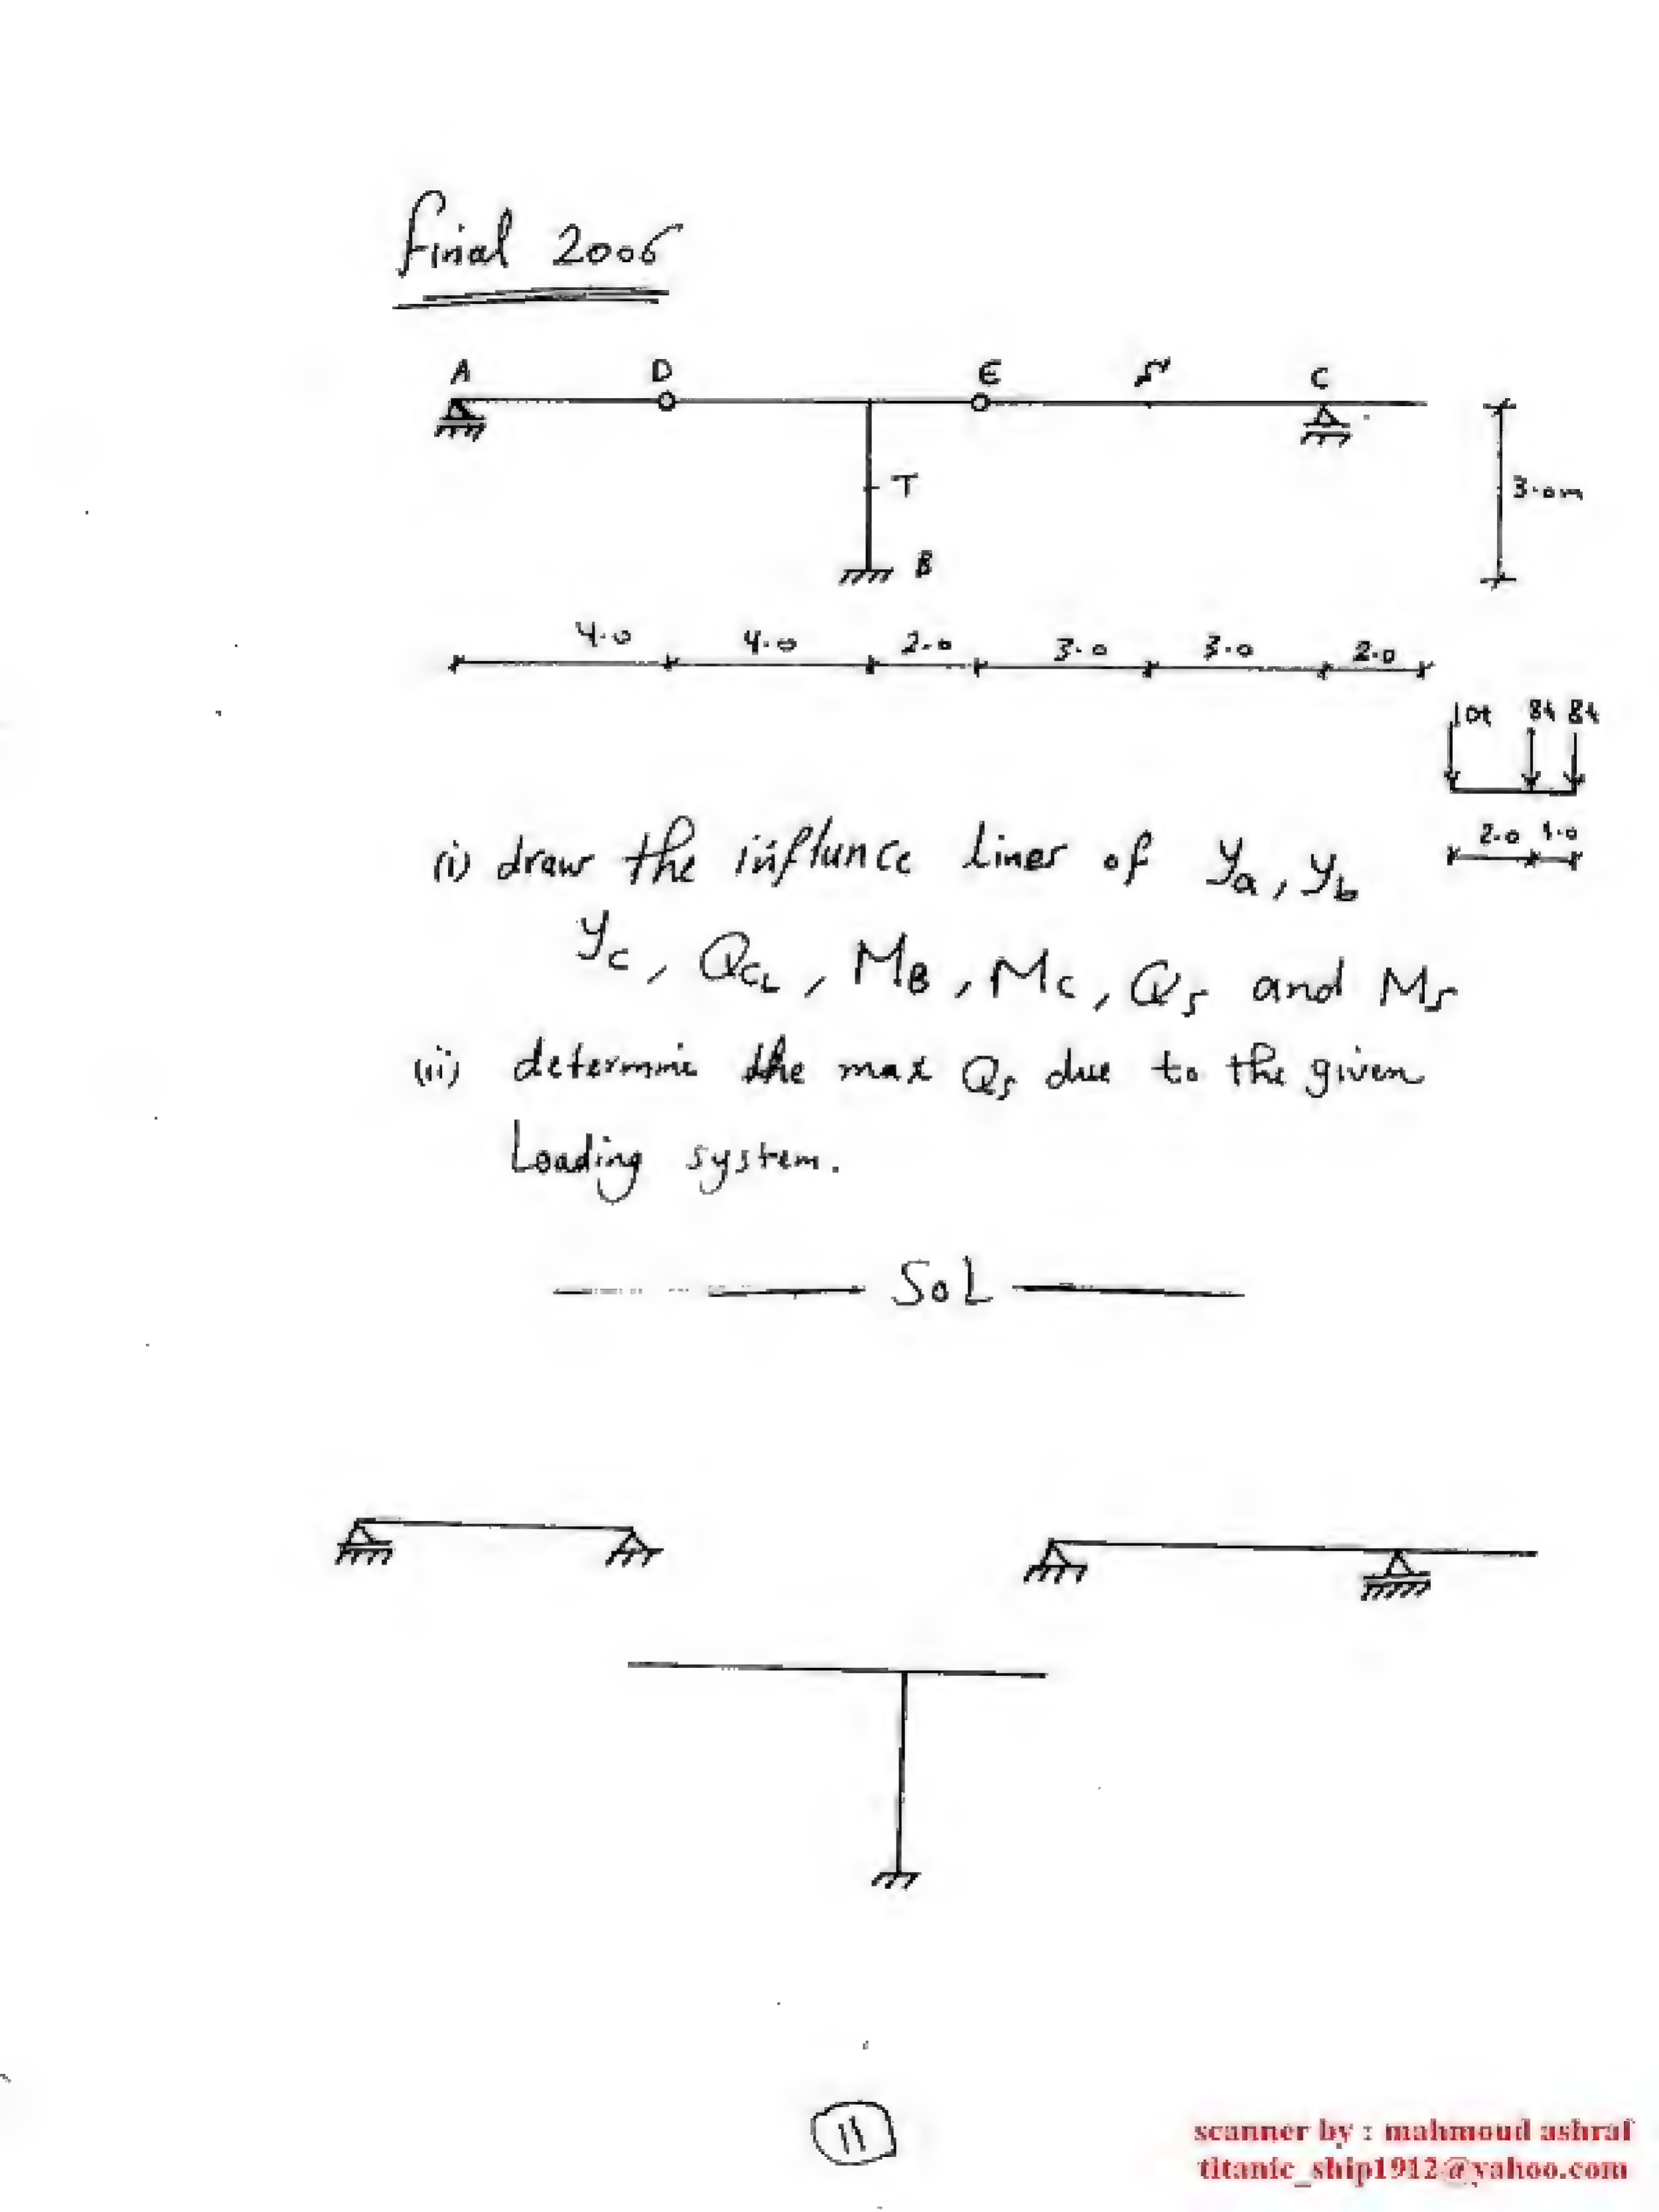 final 2006
A D E S C
T
3.0m
B
4.0 4.0 2.0 3.0 3.0 2.0
10t 8t 8t
2.0 1.0
(i) draw the influnce Lines of Ya, Yb
Yc, QCL, MB, Mc, Qs and Ms
(ii) determine the max Qs due to the given
Loading system.
SoL
11
scanner by : mahmoud ashraf
titanic_ship1912@yahoo.com